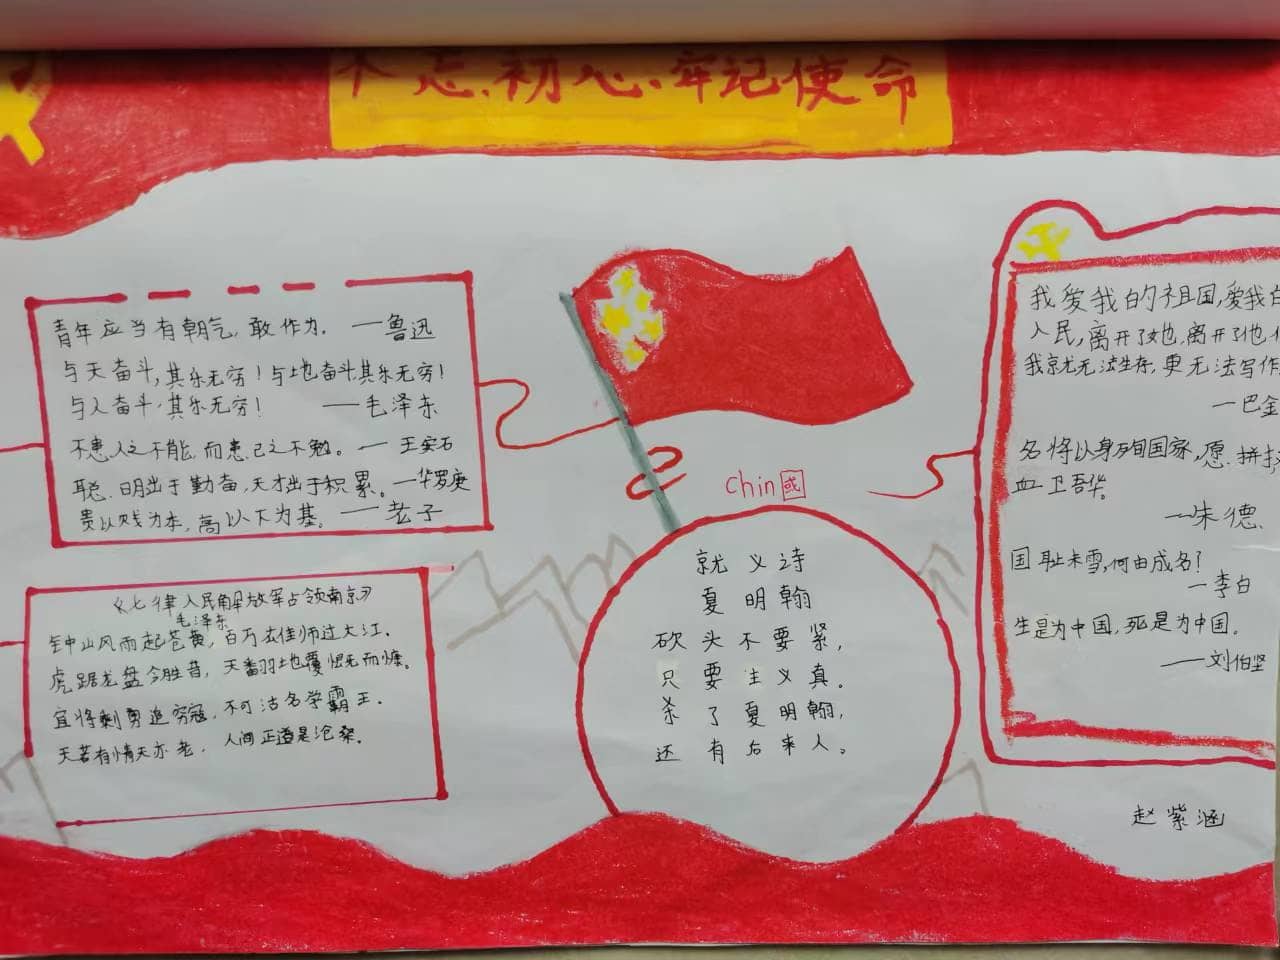 不忘初心、牢记使命
青年应当有朝气,敢作为。——鲁迅
与天奋斗,其乐无穷!与地奋斗,其乐无穷!
与人奋斗,其乐无穷! ——毛泽东
不患人之不能,而患己之不勉。——王安石
聪明出于勤奋,天才出于积累。—华罗庚
贵以贱为本,高以下为基。——老子
《七律 人民解放军占领南京》
毛泽东
钟山风雨起苍黄,百万雄师过大江。
虎踞龙盘今胜昔,天翻地覆慨而慷。
宜将剩勇追穷寇,不可沽名学霸王。
天若有情天亦老,人间正道是沧桑。
chin国
就义诗
夏明翰
砍头不要紧,
只要主义真。
杀了夏明翰,
还有后来人。
我爱我的祖国,爱我的
人民,离开了她,离开了他们
我就无法生存,更无法写作
—巴金
名将以身殉国家,愿拼热
血卫吾华。
——朱德
国耻未雪,何由成名!
—李白
生是为中国,死是为中国。
——刘伯坚
赵紫涵